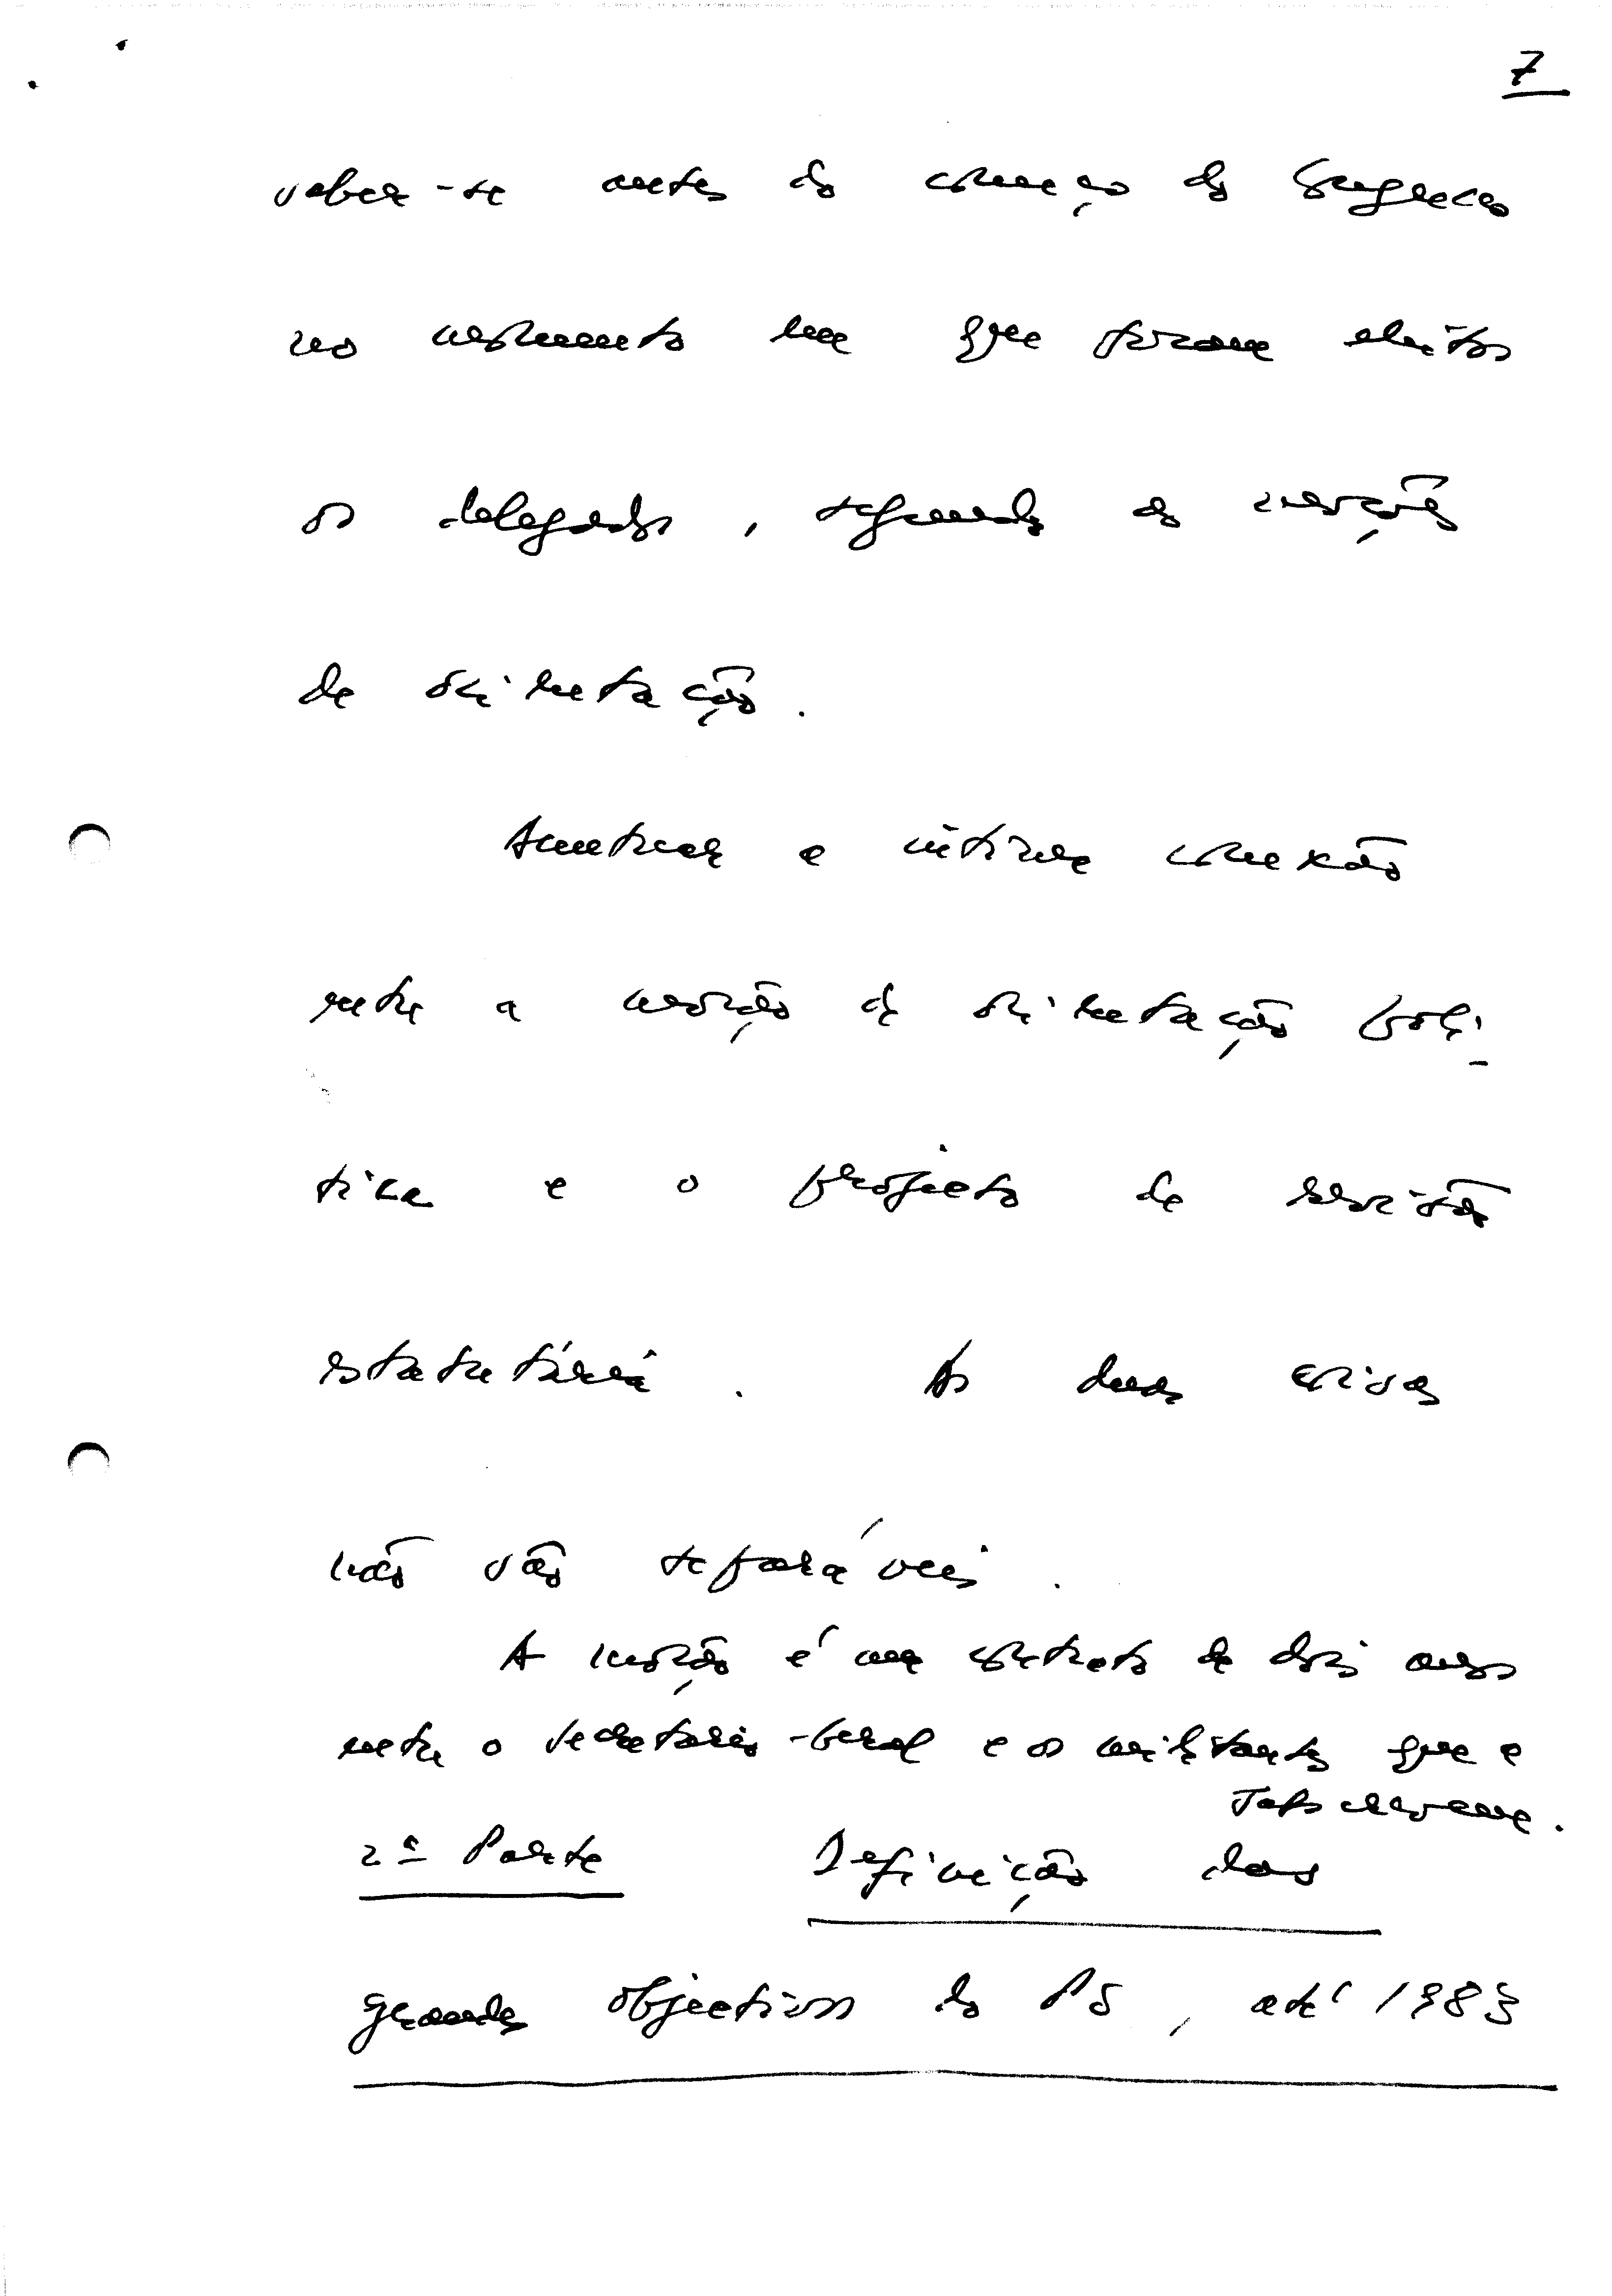 7
saber-se antes do começo do Congresso
no momento em que foram eleitos
os delegados, segundo as moções
de orientação.
Acentuar a íntima conexão
entre a moção de orientação polí-
tica e o projecto de revisão
estatutária. As duas coisas
não são separáveis.
A moção é um contrato de dois anos
entre o secretário-geral e os militantes que a
subscrevem.
2ª Parte Definição dos
grandes objectivos do PS, até 1983